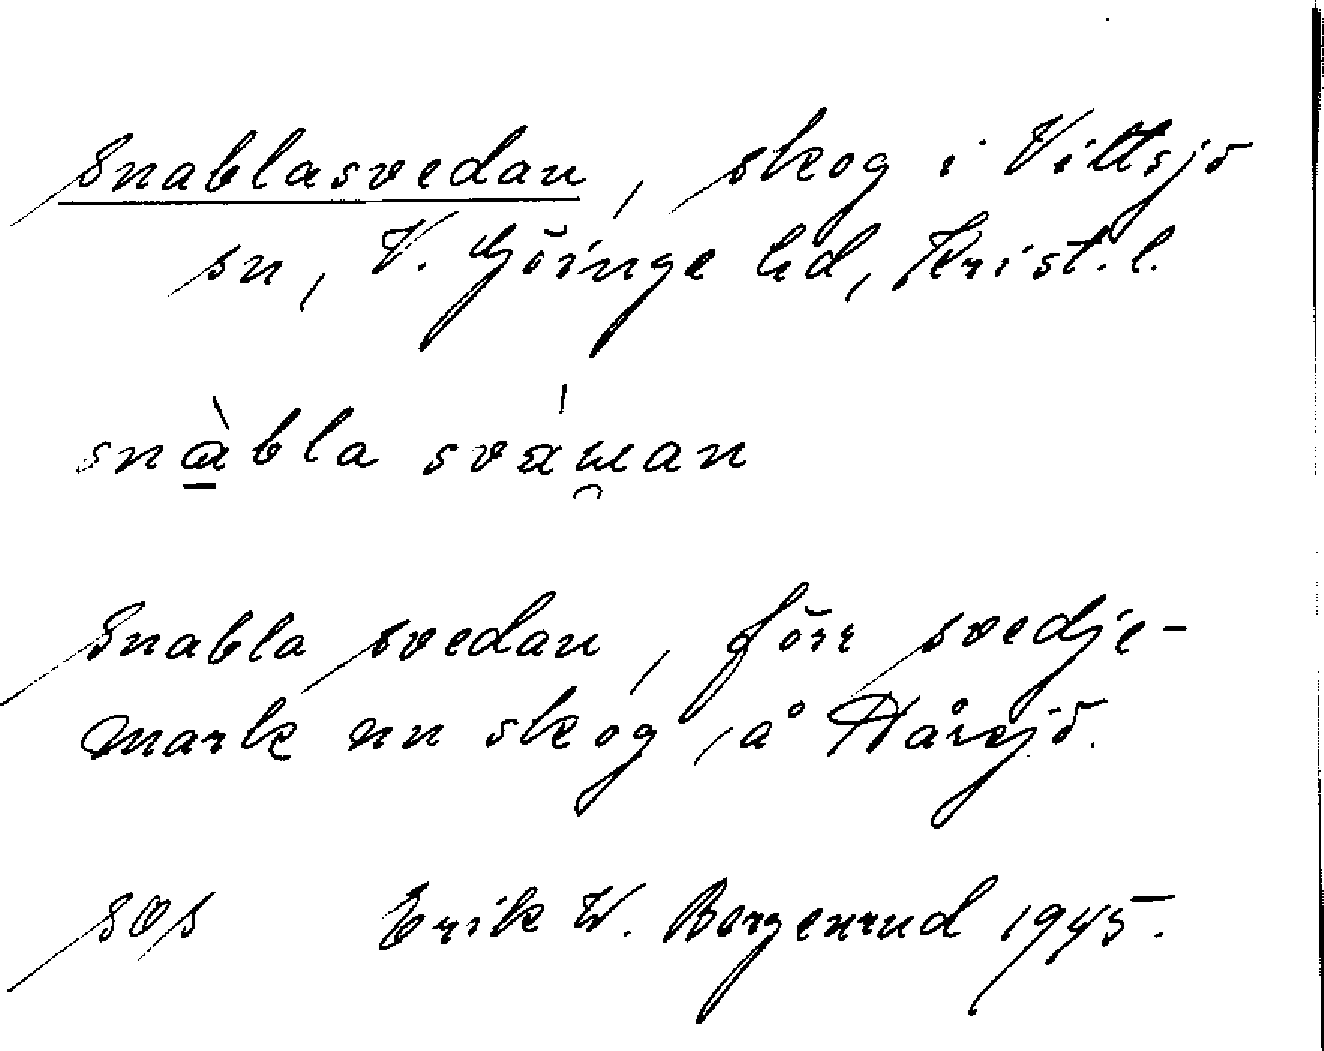 Snablasvedan, skog i Vittsjö
sn, V. Göinge hd, Krist. l.
snàbla svá
Snabla svedan, förr svedje-
mark nu skog, å Hårsjö.
sos Erik W. Borgenrud 1945.